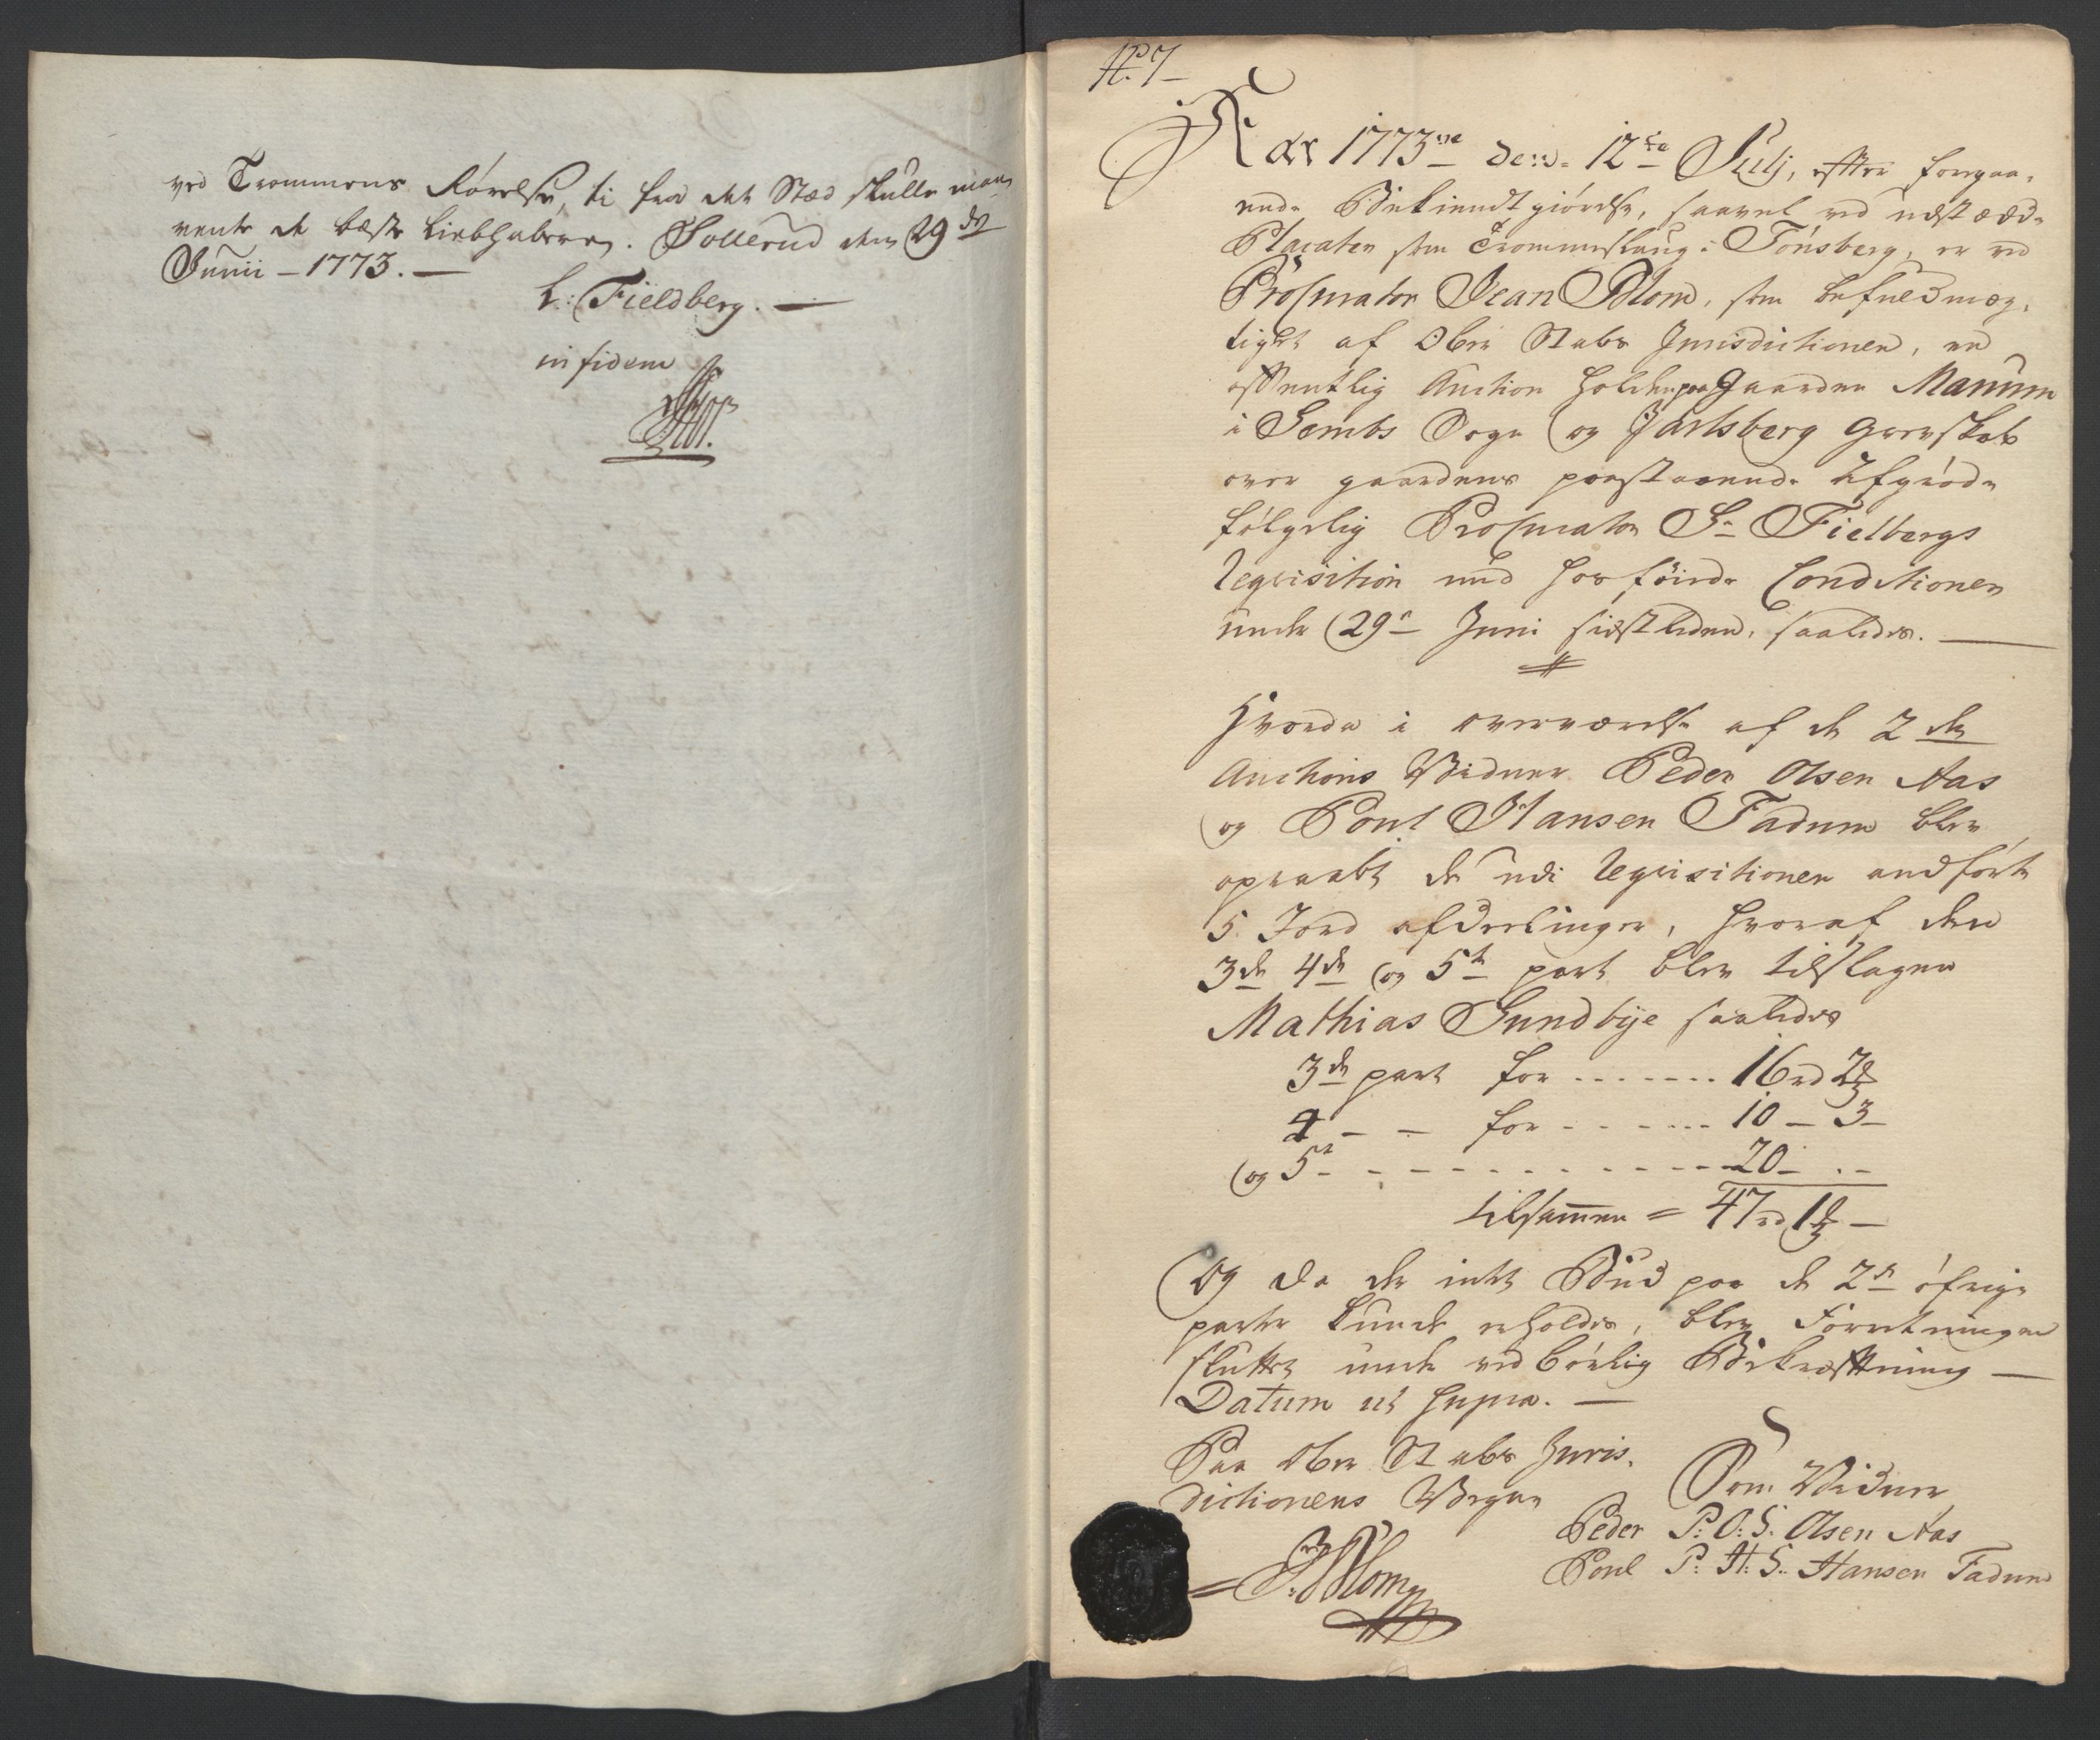 ved Trommens Rørelse, ti fra det Stæd skulle man
vente de bæste Liebhabere. Sollerud den 29de
Junii – 1773. –
L: Fieldberg. –
in fidem
No 7
Aar 1773ve den 12te Julj, efter forgaa-
ende Bekiendtgiørelse, saavel ved udstædde
Placater som Trommeslaug i Tønsberg, er ved
Procurator Jean Blom, som befuldmæg-
tiget af Ober Stabs Jurisdictionen, en
offentlig Auction holden paa Gaarden Manum
i Sembs Sogn og Jarlsberg Grevskab
over gaardens paastaaende Afgrøde
følgelig Procurator Sr Fielbergs
Reqvisition med hosføiede Conditioner
under 29de Juni sidstleden, saaledes. –
Hvorda i overværelse af de 2de
Auctions Vidner Peder Olsen Aas
og Poul Hansen Fadum blev
opraabt de udi Reqvisitionen andførte
5 Jord afdeelinger, hvoraf den
3de 4de og 5te part blev tilslagen
Mathias Sundbye saaledes
3de part for ....... 16 rd 2
4 – – for - - - ... 10 – 3 –
og 5te - - - - - - - - - - 20 – . –
tilsammen = 47 rd 1 –
Og da der intet Bud paa de 2de øfrige
parter kunde erholdes, blev Forretningen
sluttet under vedbørlig Bekræftning –
Datum ut supra. –
Paa Ober Stabs Juris-
dictionens Vegne
J: Blom
Som Vidner
Peder P: O: S. Olsen Aas
Poul P: H: S. Hansen Fadum